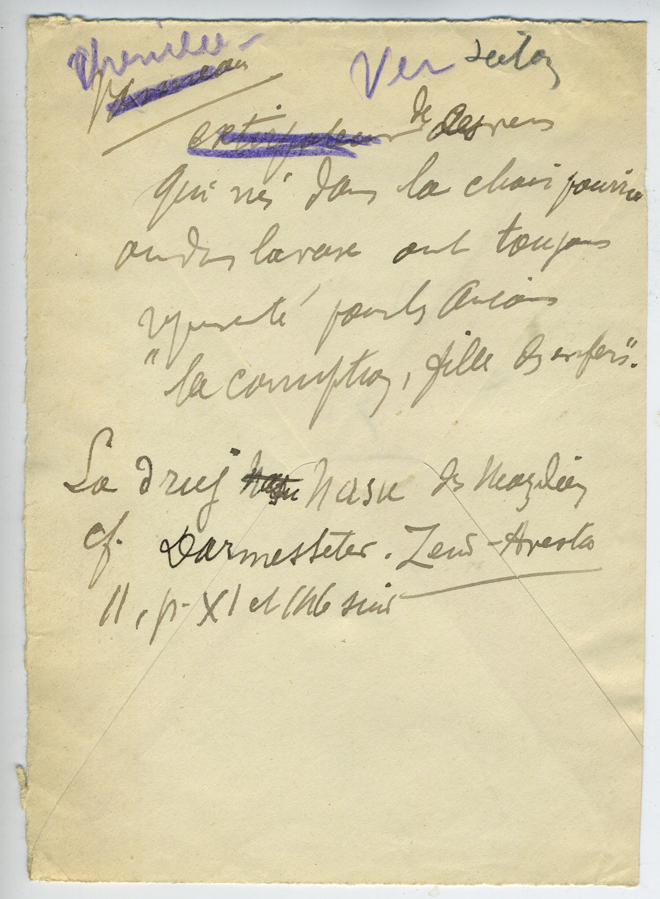 Chenille
Ver
extirpateur de des vers
qui nés dans la chair pourrie
ou dans la vase ont toujours
représenté pour les Anciens
"la corruption, fille des enfers".
La druj Nasu des Mazdéens
cf. Darmesteter. Zend-Avesta
II, p. XI et 146 suiv